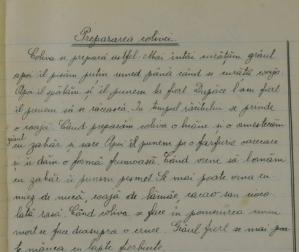 Prepararea colivei.
Coliva se prepară astfel. Mai întâi curățăm grâul
apoi îl pisăm puțin umed până când se curăță coaja.
Apoi îl spălăm și îl punem la fert. După ce l'am fert
îl punem să se răcească. În timpul răcitului se prinde
o coajă. Când preparăm coliva o luăm și o amestecăm
cu zahăr și nuci. Apoi îl punem pe o farfurie oarecare
și îi dăm o formă frumoasă. Când vrem să l ornăm
cu zahăr îi punem pesmet. Se mai poate orna cu
miez de nucă, coajă de lămâie, cacao sau cioco-
lată rasă. Când coliva se face în pomenirea unui
mort se face deasupra o cruce. Grâul fiert se mai poa-
te mânca cu lapte fierbinte.